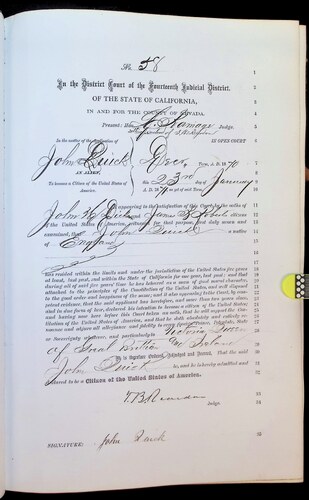 No. 58
In the District Court of the Fourteenth Judicial District,
OF THE STATE OF CALIFORNIA,
IN AND FOR THE COUNTY OF NEVADA.
Present: Hon. Judge.
IN OPEN COURT
In the matter of the application of
John Quick
AN ALIEN,
To become a Citizen of the United States of
America.
Term, A. D. 1870
this 23rd day of January
A. D. 1870
It appearing to the satisfaction of this Court by the oaths of
John and James citizens
of the United States of America, witnesses for that purpose, first duly sworn and
examined, that John Quick a native
of England
has resided within the limits and under the jurisdiction of the United States five years
at least, last past, and within the State of California for one year, last past; and that
during all of said five years' time he has behaved as a man of good moral character,
attached to the principles of the Constitution of the United States, and well disposed
to the good order and happiness of the same; and it also appearing to this Court, by com-
petent evidence, that the said applicant has heretofore, and more than two years since,
and in due form of law, declared his intention to become a citizen of the United States,
and having now here before this Court taken an oath, that he will support the Con-
stitution of the United States of America, and that he doth absolutely and entirely re-
nounce and abjure all allegiance and fidelity to every foreign Prince, Potentate, State
or Sovereignty whatever, and particularly to Victoria Queen
of Great Britain & Ireland
It is therefore Ordered, Adjudged and Decreed, That the said
John Quick be, and he is hereby admitted and
declared to be a Citizen of the United States of America.
Judge.
SIGNATURE: John Quick